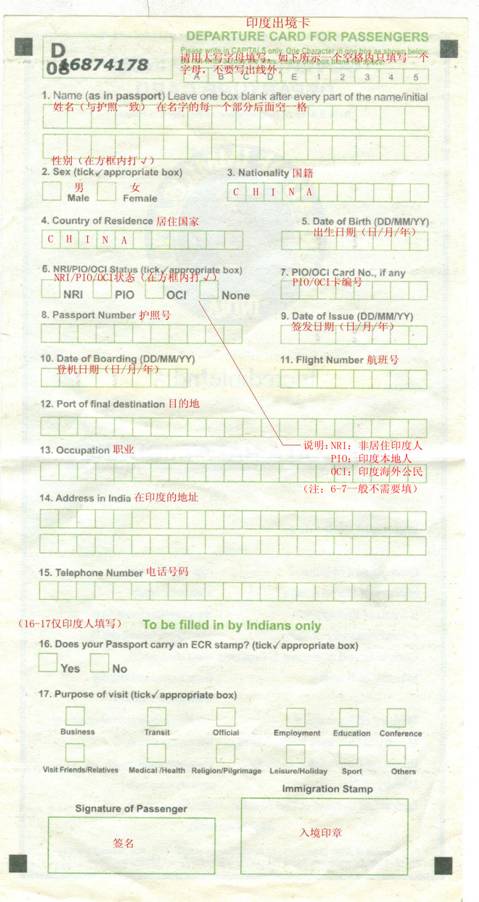 印度出境卡
DEPARTURE CARD FOR PASSENGERS
D
08
16874178
Please write in CAPITALS only. One Character in one box as shown below
请用大写字母填写，如下所示一个空格内只填写一个
字母，不要写出线外。
A B C D E 1 2 3 4 5
1. Name (as in passport) Leave one box blank after every part of the name/initial
姓名（与护照一致） 在名字的每一个部分后面空一格
性别（在方框内打√）
2. Sex (tick✓appropriate box)
3. Nationality 国籍
男
Male
女
Female
C H I N A
4. Country of Residence 居住国家
5. Date of Birth (DD/MM/YY)
出生日期（日/月/年）
C H I N A
6. NRI/PIO/OCI Status (tick✓appropriate box)
NRI/PIO/OCI状态（在方框内打√）
7. PIO/OCi Card No., if any
PIO/OCI卡编号
NRI PIO OCI None
8. Passport Number 护照号
9. Date of Issue (DD/MM/YY)
签发日期（日/月/年）
10. Date of Boarding (DD/MM/YY)
登机日期（日/月/年）
11. Flight Number 航班号
12. Port of final destination 目的地
13. Occupation 职业
说明:NRI：非居住印度人
PIO：印度本地人
OCI：印度海外公民
（注：6-7一般不需要填）
14. Address in India 在印度的地址
15. Telephone Number 电话号码
（16-17仅印度人填写）
To be filled in by Indians only
16. Does your Passport carry an ECR stamp? (tick✓appropriate box)
Yes No
17. Purpose of visit (tick✓appropriate box)
Business Transit Official Employment Education Conference
Visit Friends/Relatives Medical /Health Religion/Pilgrimage Leisure/Holiday Sport Others
Signature of Passenger
Immigration Stamp
签名
入境印章